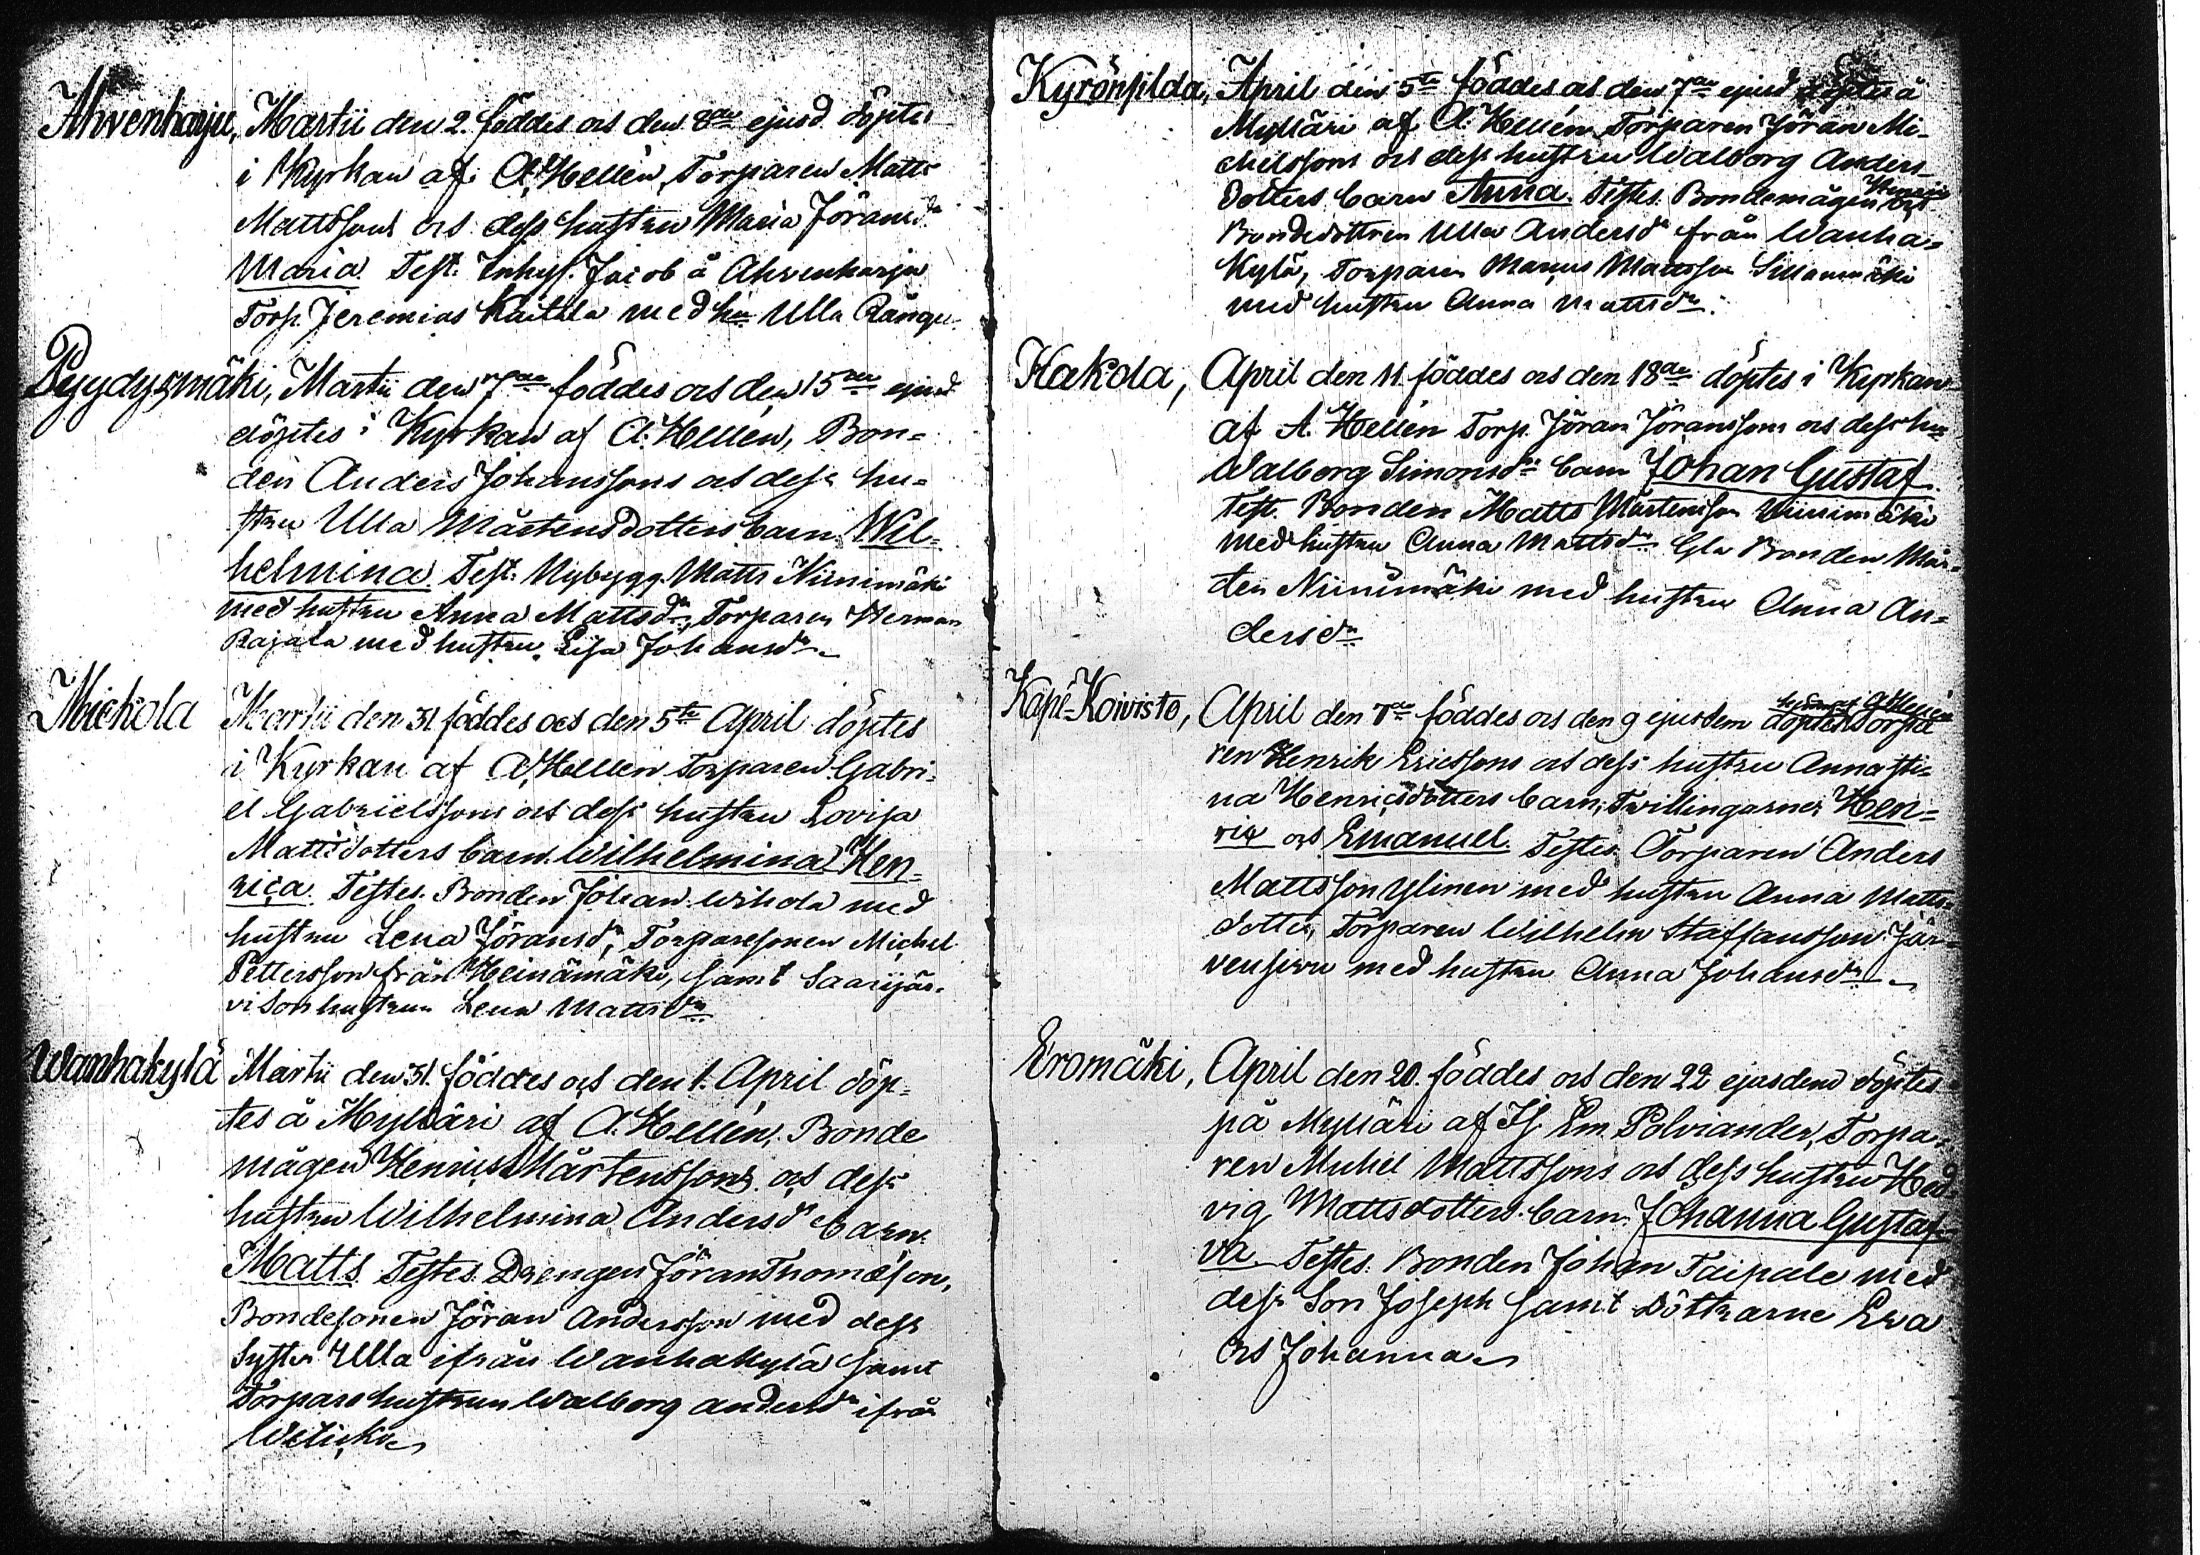 Ahvenharju, Martii den 2. föddes och den 8de ejusd. döptes
i Kyrkan af A. Hellén, Torparen Matts
Mattssons och dess hustru Maria Jöransdr
Maria. Test. Inhys. Jacob å Ahvenharju
Torp. Jeremias Kaitala med hu Ulla
Pyydysmäki, Martii den 7de föddes och den 15de ejusd
döptes i Kyrkan af A. Hellén, Bon=
den Anders Johanssons och dess hu=
stru Ulla Mårtensdotters barn Wil=
helmina. Test. Nybygg. Matts Niinimäki
med hustru Anna Mattsdr, Torparen Herman
Rajala med hustru Lisa Johansdr
Mickola Martii den 31 föddes och den 5te April döptes
i Kyrkan af A. Hellén Torparen Gabri=
el Gabrielssons och dess hustru Lovisa
Mattsdotters barn Wilhelmina Hen=
rica. Testes. Bonden Johan Wihola med
hustru Lena Jöransdr, Torparesonen Michel
Pettersson från Heinämäki, samt Saarijär=
vi Sonhustrun Lena Mattsdr
Wanhakylä Martii den 31. föddes och den 1. April döp=
tes å Mylläri af A. Hellén, Bonde
mågen Henrics Mårtenssons och dess
hustru Wilhelmina Andersdr barn
Matts. Testes. Drengen Jöran Thomæson,
Bondesonen Jöran Andersson med dess
Syster Ulla ifrån Wanhakylä samt
Torpare hustrun Walborg Andersdr ifrån

Kyrönpilda, April den 5te föddes och den 7de ejusd döptes å
Mylläri af A. Hellén Torparen Jöran Mi=
chilssons och dess hustru Walborg Anders
dotters barn Anna. Testes. Bondemågen Henric och
Bondedottren Ulla Andersdr från Wanha=
kylä, Torparen Marcus Mattsson Sillanmäki
med hustru Anna Mattsdr.
Hakola, April den 11 föddes och den 18de döptes i Kyrkan
af A. Hellén Torp. Jöran Jöranssons och dess hu
Walborg Simonsdrs barn Johan Gustaf.
Test. Bonden Matts Mårtensson Niinimäki
med hustru Anna Mattsdr Gla Bonden Mår=
ten Niinimäki med hustru Anna An=
dersdr
Käpi-Koivisto, April den 7de föddes och den 9 ejusdem döptes af A Hellén Torpa
ren Henrik Ericssons och dess hustru Anna Sti=
na Henricsdotters barn, Twillingarne, Hen=
ric och Emanuel. Testes. Torparen Anders
Mattsson Ylinen med hustru Anna Matts
dotter, Torparen Wilhelm Staffansson Jär=
vensivu med hustru Anna Johansdr
Eromäki, April den 20. föddes och den 22 ejusdem döptes
på Mylläri af Is Em. Polviander, Torpa=
ren Michel Mattssons och dess hustru Hed=
vig Mattsdotters barn Johanna Gustaf=
va. Testes. Bonden Johan Taipale med
dess Son Joseph samt Döttrarne Eva
och Johanna